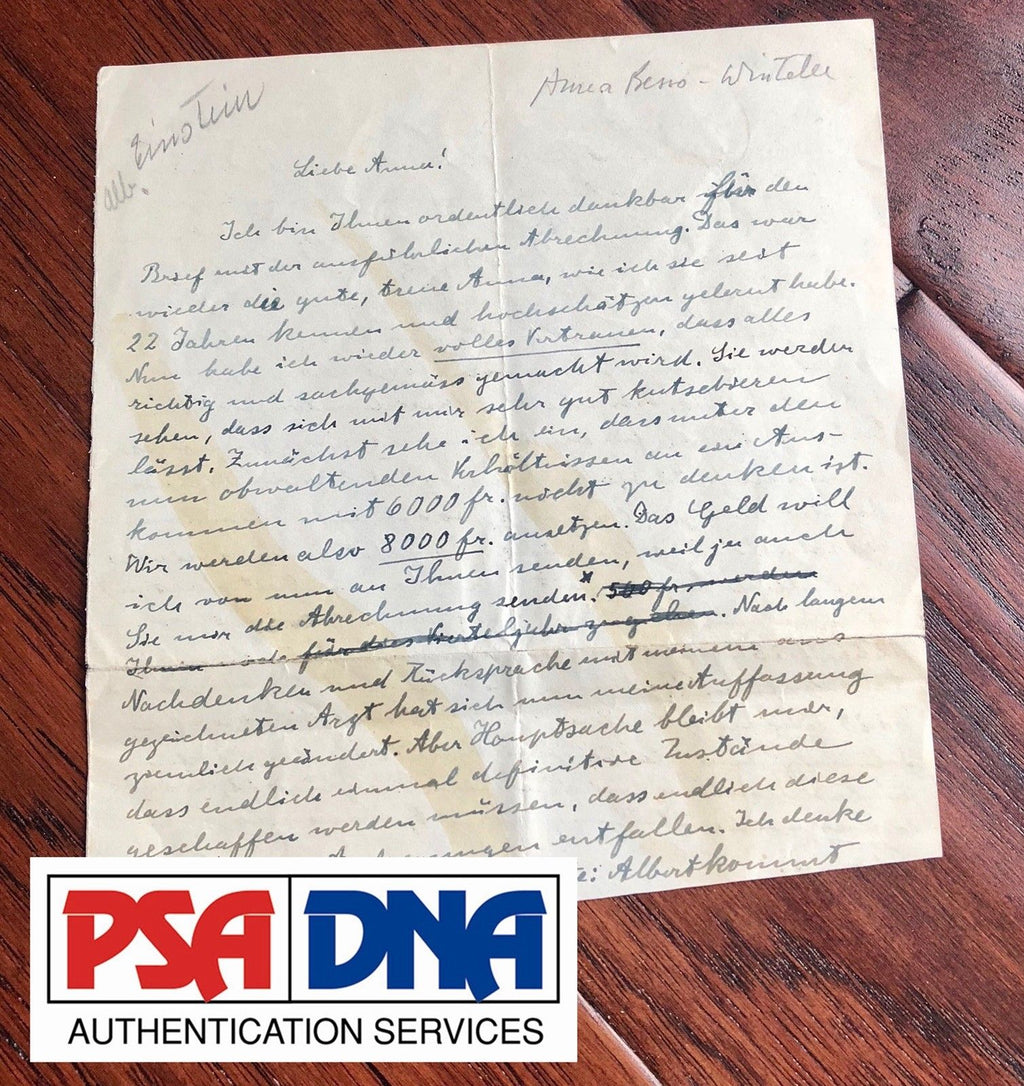 alb. Einstein
Anna Besso-Winteler
Liebe Anna!
Ich bin Ihnen ordentlich dankbar für den
Brief mit der ausführlichen Abrechnung. Das war
wieder die gute, treue Anna, wie ich sie seit
22 Jahren kennen und hochschätzen gelernt habe.
Nun habe ich wieder volles Vertrauen, dass alles
richtig und sachgemäss gemacht wird. Sie werden
sehen, dass sich mit mir sehr gut kutschieren
lässt. Zunächst sehe ich ein, dass unter den
nun obwaltenden Verhältnissen an ein Aus-
kommen mit 6000 fr. nicht zu denken ist.
Wir werden also 8000 fr. ansetzen. Das Geld will
ich von nun an Ihnen senden, weil ja auch
Sie mir die Abrechnung senden.* 500 fr. werden
Ihnen für dies Vierteljahr zugehen. Nach langem
Nachdenken und Rücksprache mit meinem aus
gezeichneten Arzt hat sich nun meine Auffassung
ziemlich geändert. Aber Hauptsache bleibt mir,
dass endlich einmal definitive Zustände
geschaffen werden müssen, dass endlich diese
entfallen. Ich denke
Albert kommt
PSA DNA
AUTHENTICATION SERVICES